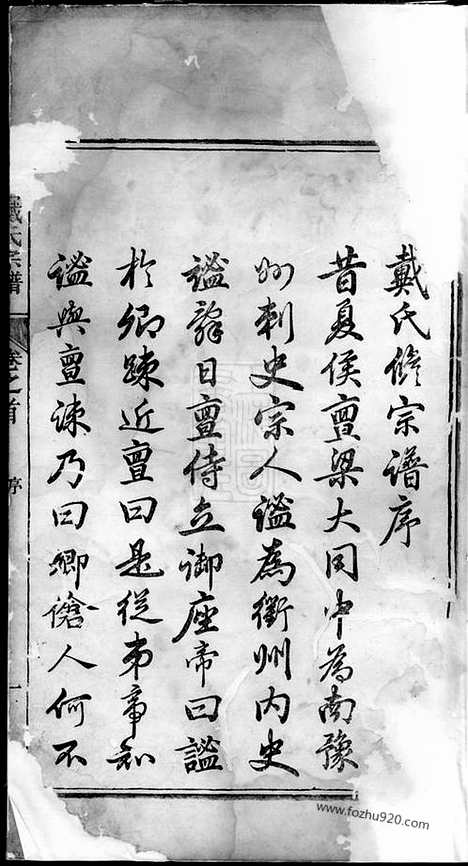 戴氏修宗譜序
昔夏侯亶梁大同中為南豫
州刺史宗人謐為衡州內史
謐辭日亶侍立御座帝曰謐
於卿踈近亶曰是從弟帝知
謐與亶踈乃曰卿傖人何不
戴氏宗譜
卷之首
序
一
www.fozhu920.com